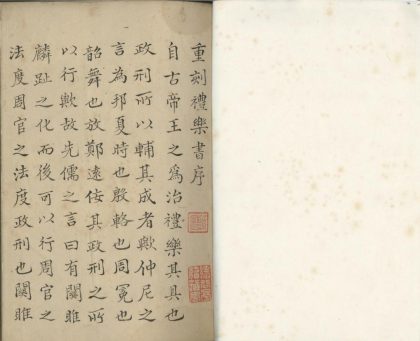 重刻禮樂書序
自古帝王之為治禮樂其具也
政刑所以輔其成者歟仲尼之
言為邦夏時也殷輅也周冕也
韶舞也放鄭遠佞其政刑之所
以行歟故先儒之言曰有關雎
麟趾之化而後可以行周官之
法度周官之法度政刑也關雎